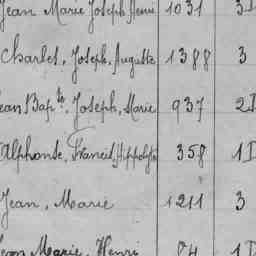 Jean Marie Joseph Henri 1031 3D
Charles, Joseph, Auguste 1388 3
Jean Bapte, Joseph, Marie 937 2D
Alphonse, Francis, Hippolyte 358 1D
Jean, Marie 1211 3
Jean Marie, Henri 84 1D